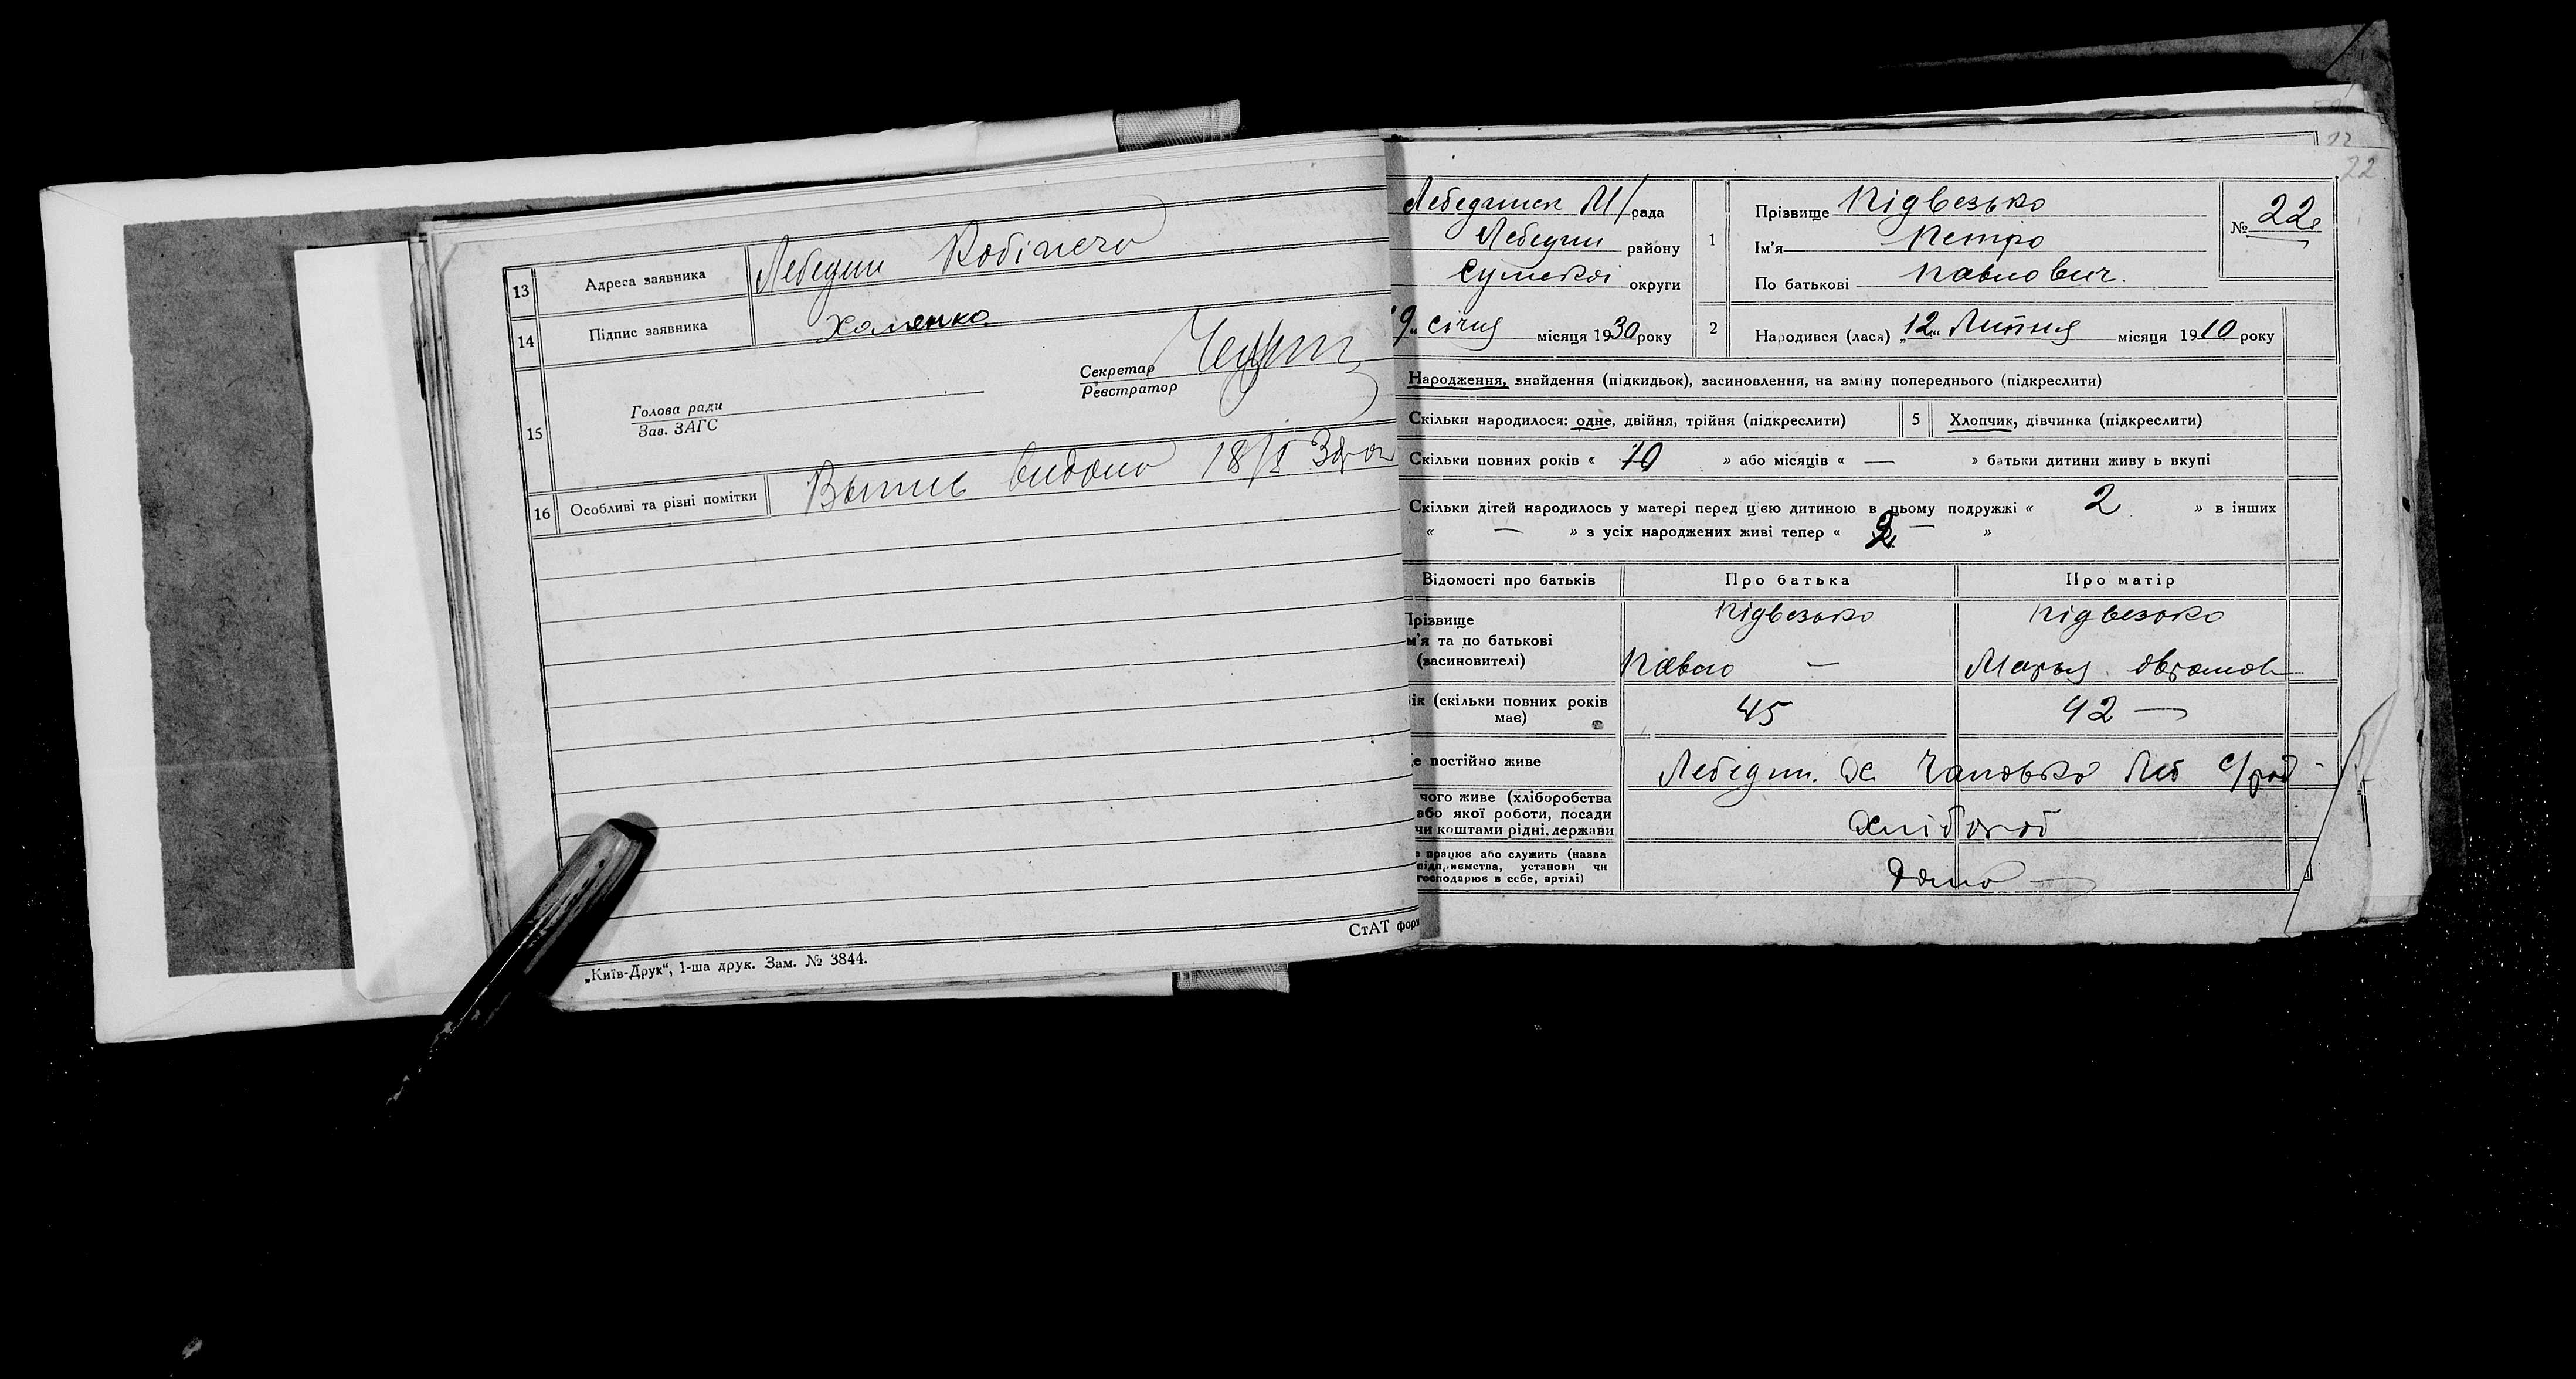 13 Адреса заявника Лебедин
14 Підпис заявника Хоменко
15 Голова ради
Зав. ЗАГС
Секретар
Реєстратор
16 Особливі та різні помітки Выпись видано 18/
„Київ-Друк“, 1-ша друк. Зам. № 3844.
СтАТ форм
12
22
Лебединск М/рада
Лебедин району
Сумської округи
9„ січня місяця 1930 року
1 Прізвище Підвезько
Ім'я Петро
По батькові Павлович.
№ 22
2 Народився (лася) „12“ Липня місяця 1910 року
Народження, знайдення (підкидьок), засиновлення, на зміну попереднього (підкреслити)
Скільки народилося: одне, двійня, трійня (підкреслити) 5 Хлопчик, дівчинка (підкреслити)
Скільки повних років « 10 » або місяців « — » батьки дитини живу ь вкупі
Скільки дітей народилось у матері перед цією дитиною в цьому подружжі « 2 » в інших
« — » з усіх народжених живі тепер « 2 — »
Відомості про батьків Про батька Про матір
Прізвище Підвезько Підвезько
м'я та по батькові
(засиновителі) Павло — Марья
ік (скільки повних років має) 45 42 —
е постійно живе Лебедин. с/рад
чого живе (хліборобства
або якої роботи, посади
чи коштами рідні, держави Хлібороб
е працює або служить (назва
підприємства, установи чи
господарює в себе, артілі) Дома —